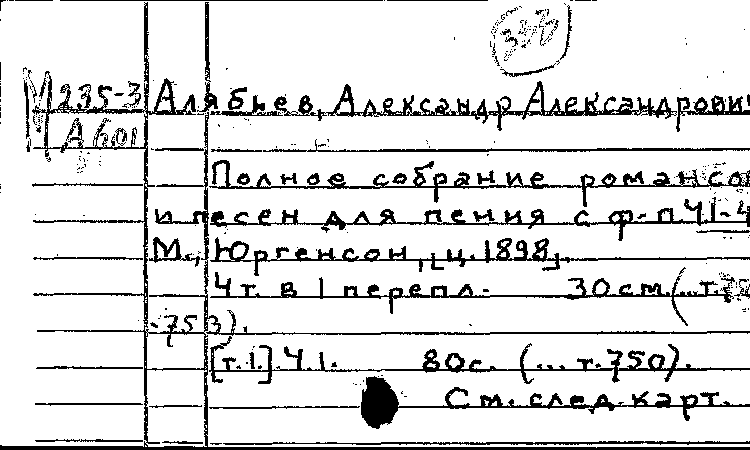 М 235-3 Алябьев, Александр Александрович
А 601
Полное собрание романсов
и песен для пения с ф-п. Ч.1-4
М., Юргенсон, [ц. 1898].
4 т. в 1 перепл. 30 см. (... т.
-753).
[т.1.] Ч.1. 80с. (... т.750).
См. след. карт.